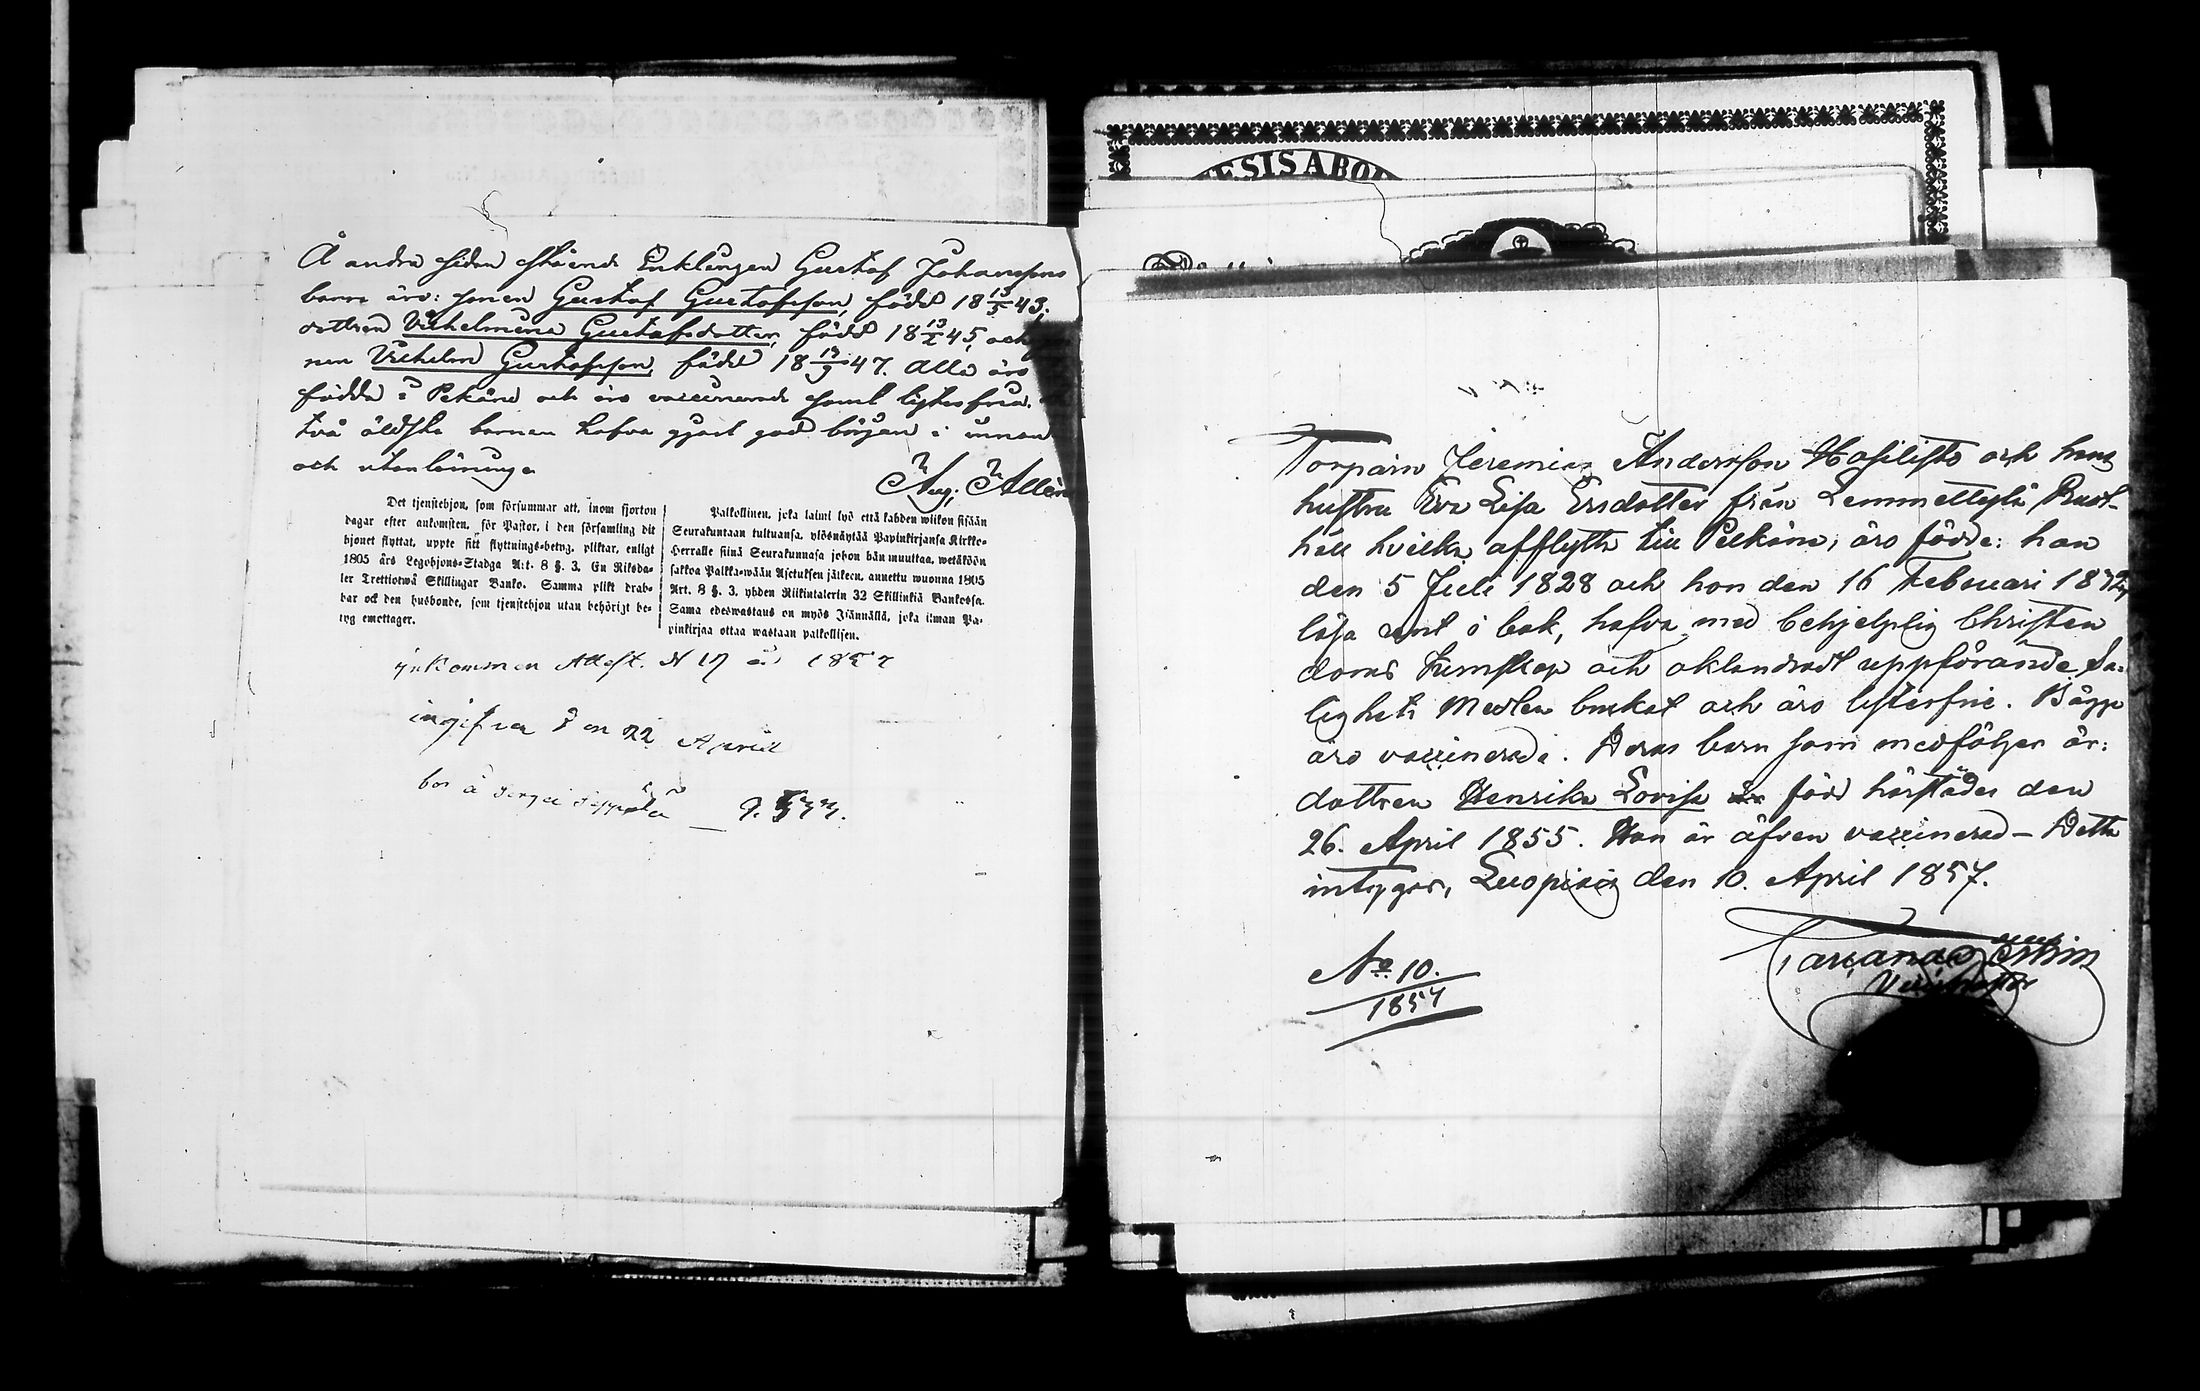 Å andra sidan stående Enklingen Gustaf Johanssons
barn äro: sonen Gustaf Gustafsson, född 18 13/5 43,
dottren Vilhelmina Gustafsdotter, född 18 13/X 45, och
nen Vilhelm Gustafsson, född 18 19/9 47. Alla äro
födda i Pelkäne och äro vaccinerade samt lytesfria.
två äldsta barnen hafva gjort god början i innan
och utanläsning.
Aug. Allén
Det tjenstehjon, som försummar att, inom fjorton
dagar efter ankomsten, för Pastor, i den församling dit
hjonet flyttat, uppte sitt flyttnings-betyg, pliktar, enligt
1805 års Legohjons-Stadga Art. 8 §. 3. En Riksda-
ler Trettiotwå Skillingar Banko. Samma plikt drab-
bar ock den husbonde, som tjenstehjon utan behörigt be-
tyg emottager.
Palkollinen, joka laimi lyö että kahden wiikon sisään
Seurakuntaan tultuansa, ylösnäytää Papinkirjansa Kirkko-
Herralle siinä Seurakunnasa johon hän muuttaa, wetäköön
sakkoa Palkka-wään Asetuksen jälkeen, annettu wuonna 1805
Art. 8 §. 3, yhden Riikintalerin 32 Skillinkiä Bankossa.
Sama edeswastaus on myös Isännällä, joka ilman Pa-
pinkirjaa ottaa wastaan palkollisen.
inkommen Attest. N 17 år 1857
ingifven den 22 April
bor å Seppälä
Torparn Jeremias Andersson Hasilisto och hans
hustru Eva Lisa Ersdotter från Lemmettylä Rust-
håll hvilka afflytta till Pelkäne, äro födde: han
den 5 Juli 1828 och hon den 16 Februari 1832,
läsa rent i bok, hafva med behjelplig Christen
doms kunskap och oklandradt uppförande Sa-
lighets Medlen brukat och äro lytesfrie. Bägge
äro vaccinerade. Deras barn som medföljer är:
dottren Henrika Lovisa född härstädes den
26. April 1855. Hon är äfven vaccinerad – Detta
intygar, Luopiois den 10. April 1857.
No 10.
1857